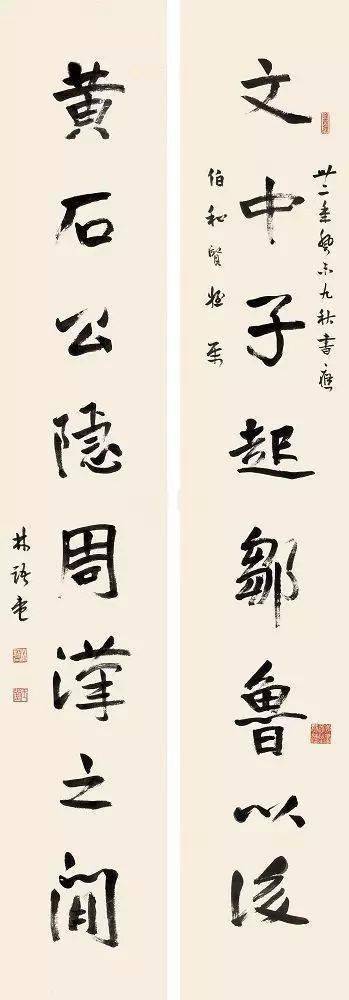 文中子起鄒魯以後
卅二年癸未九秋書應
伯和賢姪屬
黄石公隱周漢之間
林語堂